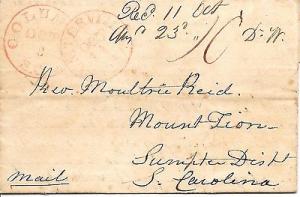 COLUM
Rec. 11 Oct
Ans. 23d. 10 D. W.
Rev. Moultrie Reid.
Mount Zion
Sumpter Dist
S. Carolina
Mail